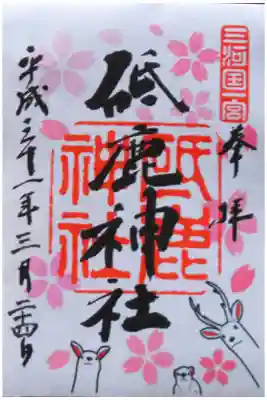 三河国一宮
奉拝
砥鹿神社
砥鹿神社
平成三十一年三月二十四日